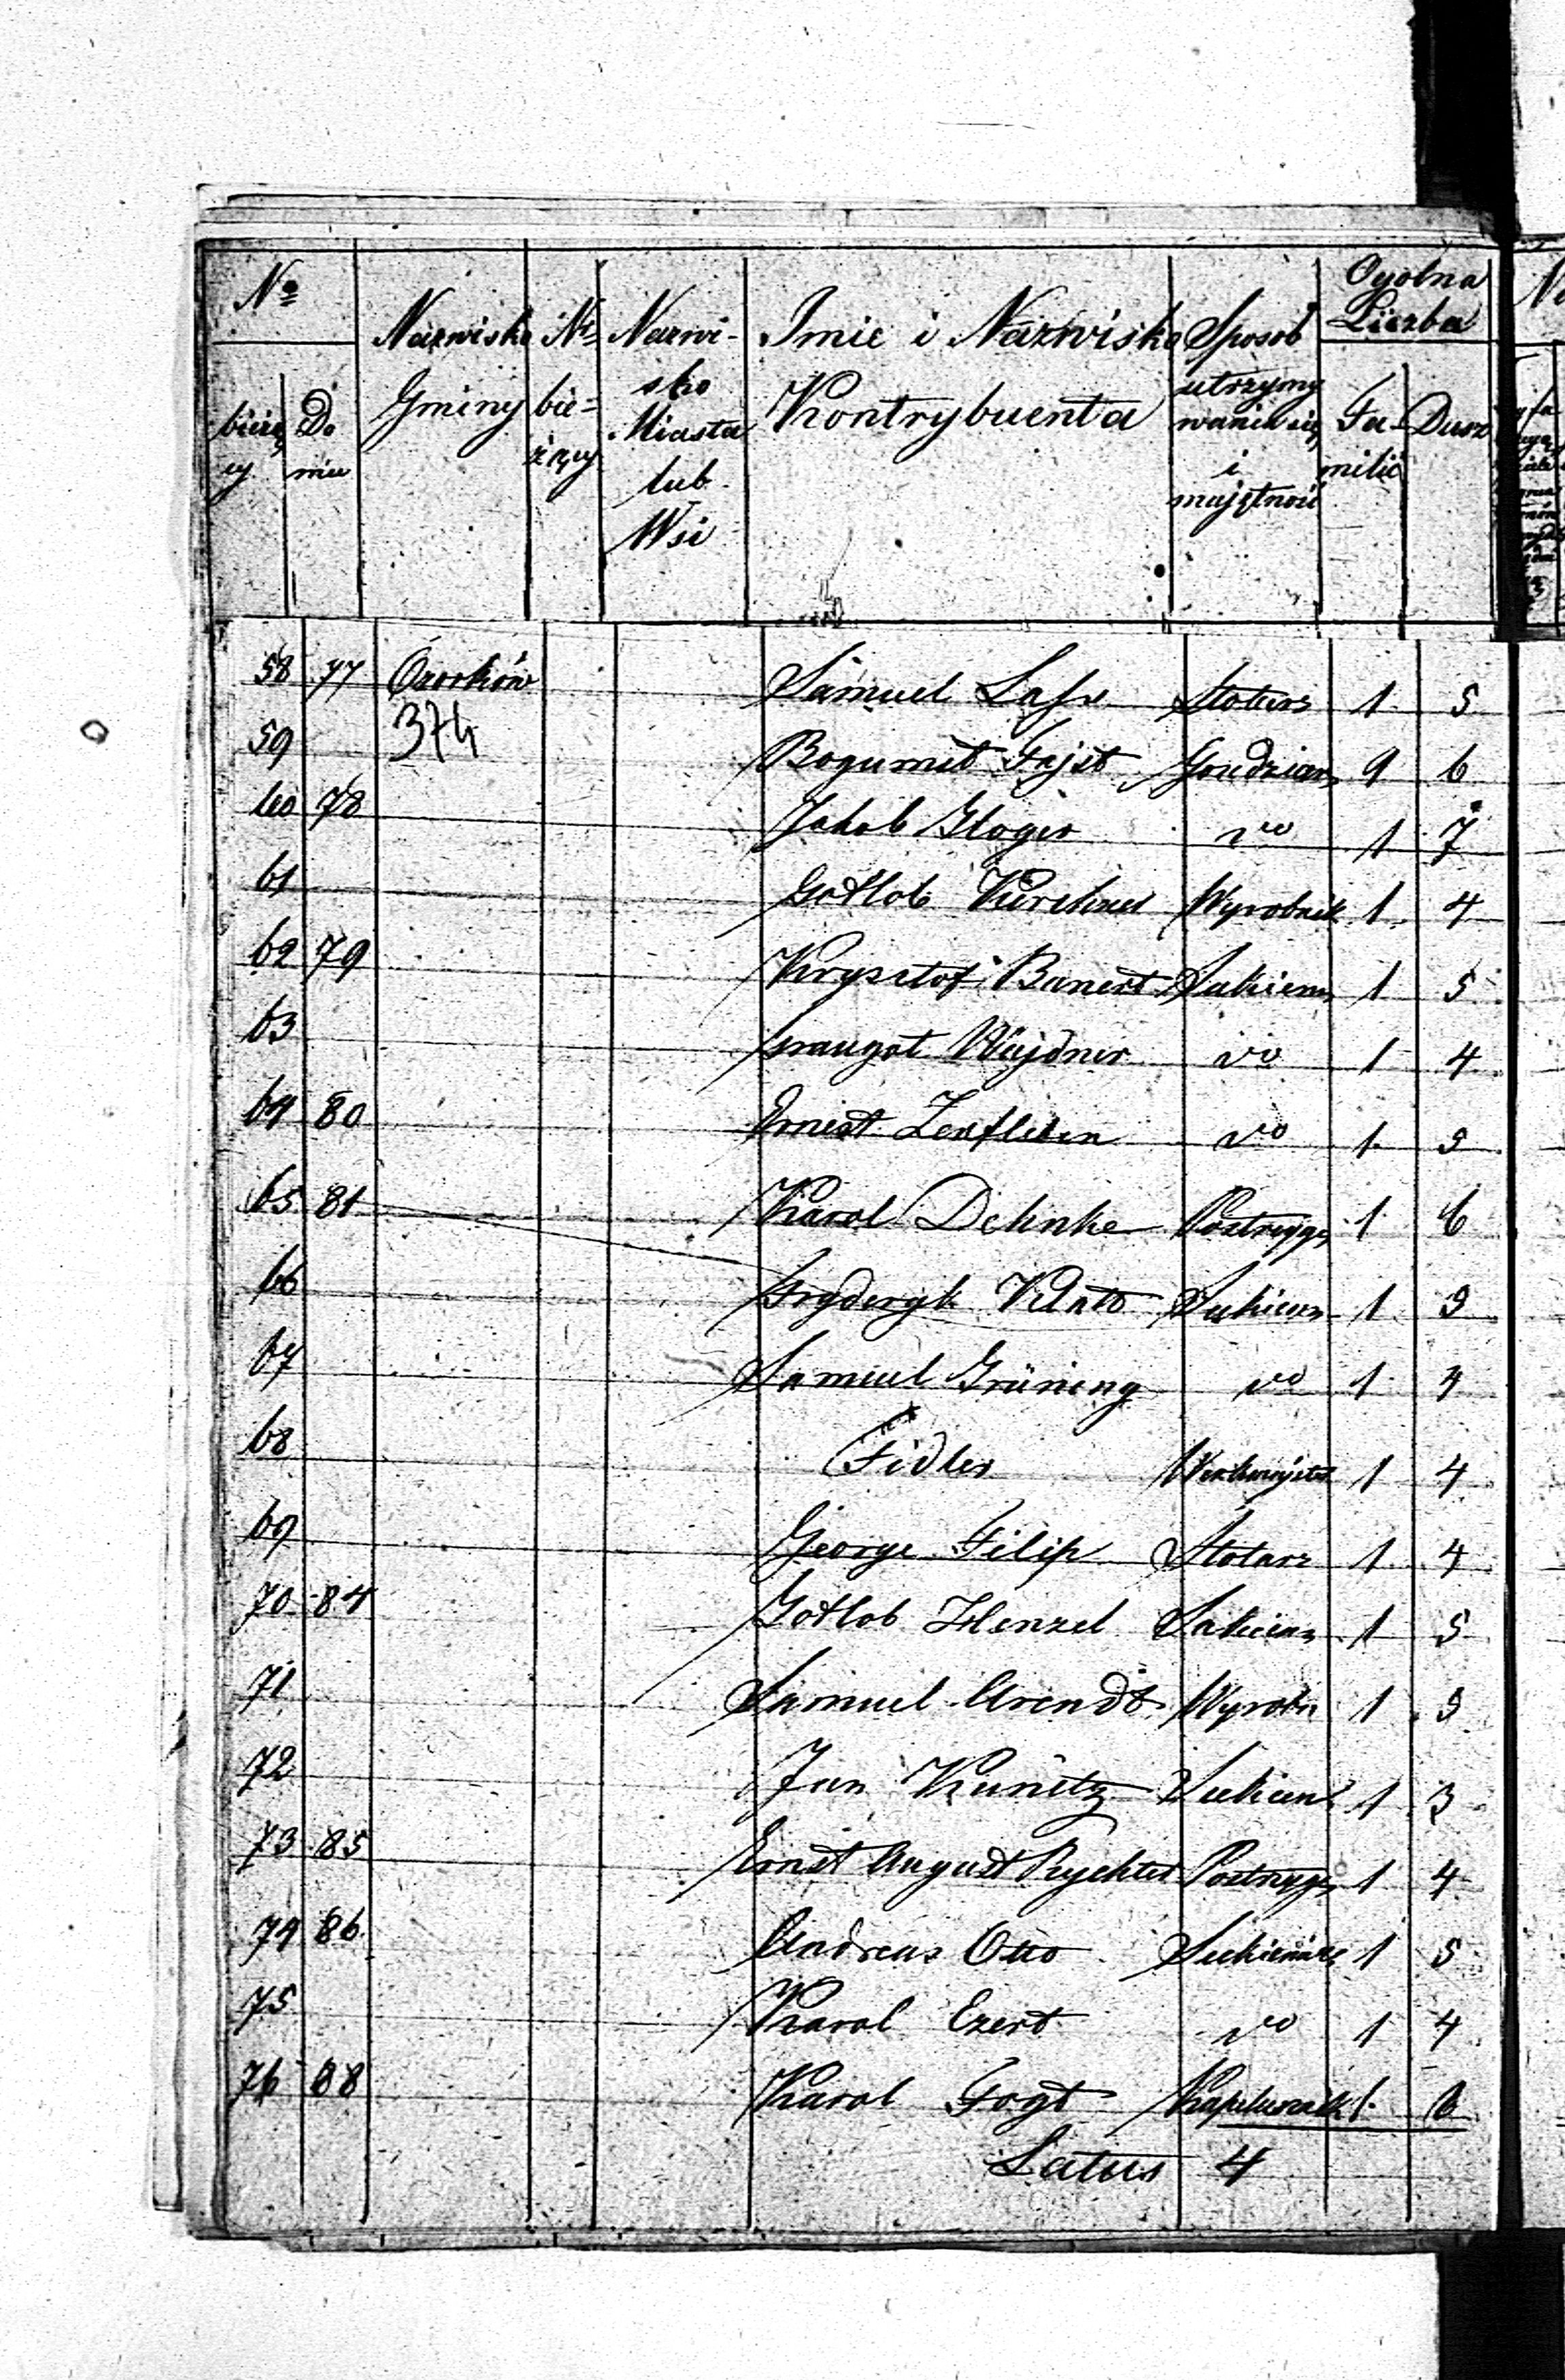 Nº
bieżący
Domu
Nazwisko Gminy
Nº bieżący
Nazwisko Miasta lub Wsi
Imie i Nazwisko Kontrybuenta
Sposob utrzymywania się i majętność
Ogolna Liczba
Familii
Dusz
58 77 Ozorków Samuel Stolarz 1 5
374
59 Bogumił Fajst 9 6
60 78 Jakob Gloger vo 1 7
61 Gottlob Kirchner Wyrobnik 1 4
62 79 Krysztof Banert Sukienn 1 5
63 Wäjdner vo 1 4
64 80 Ernest vo 1 3
65 81 Karol Dehnke Postrzyga 1 6
66 Frydryk Sukienn 1 3
67 Samuel Grüning vo 1 4
68 Fidler 1 4
69 George Filip Stolarz 1 4
70 84 Gottlob Henzel Sukienn 1 5
71 Samuel Arendt Wyrobn 1 3
72 Jan Kunitz Sukienn 1 3
73 85 Ernst August Rychter Postrzyg 1 4
74 86 Andreas Otto Sukiennik 1 5
75 Karol Ezert vo 1 4
76 88 Karol Fogt Kapelusznik 1 6
Latus 4